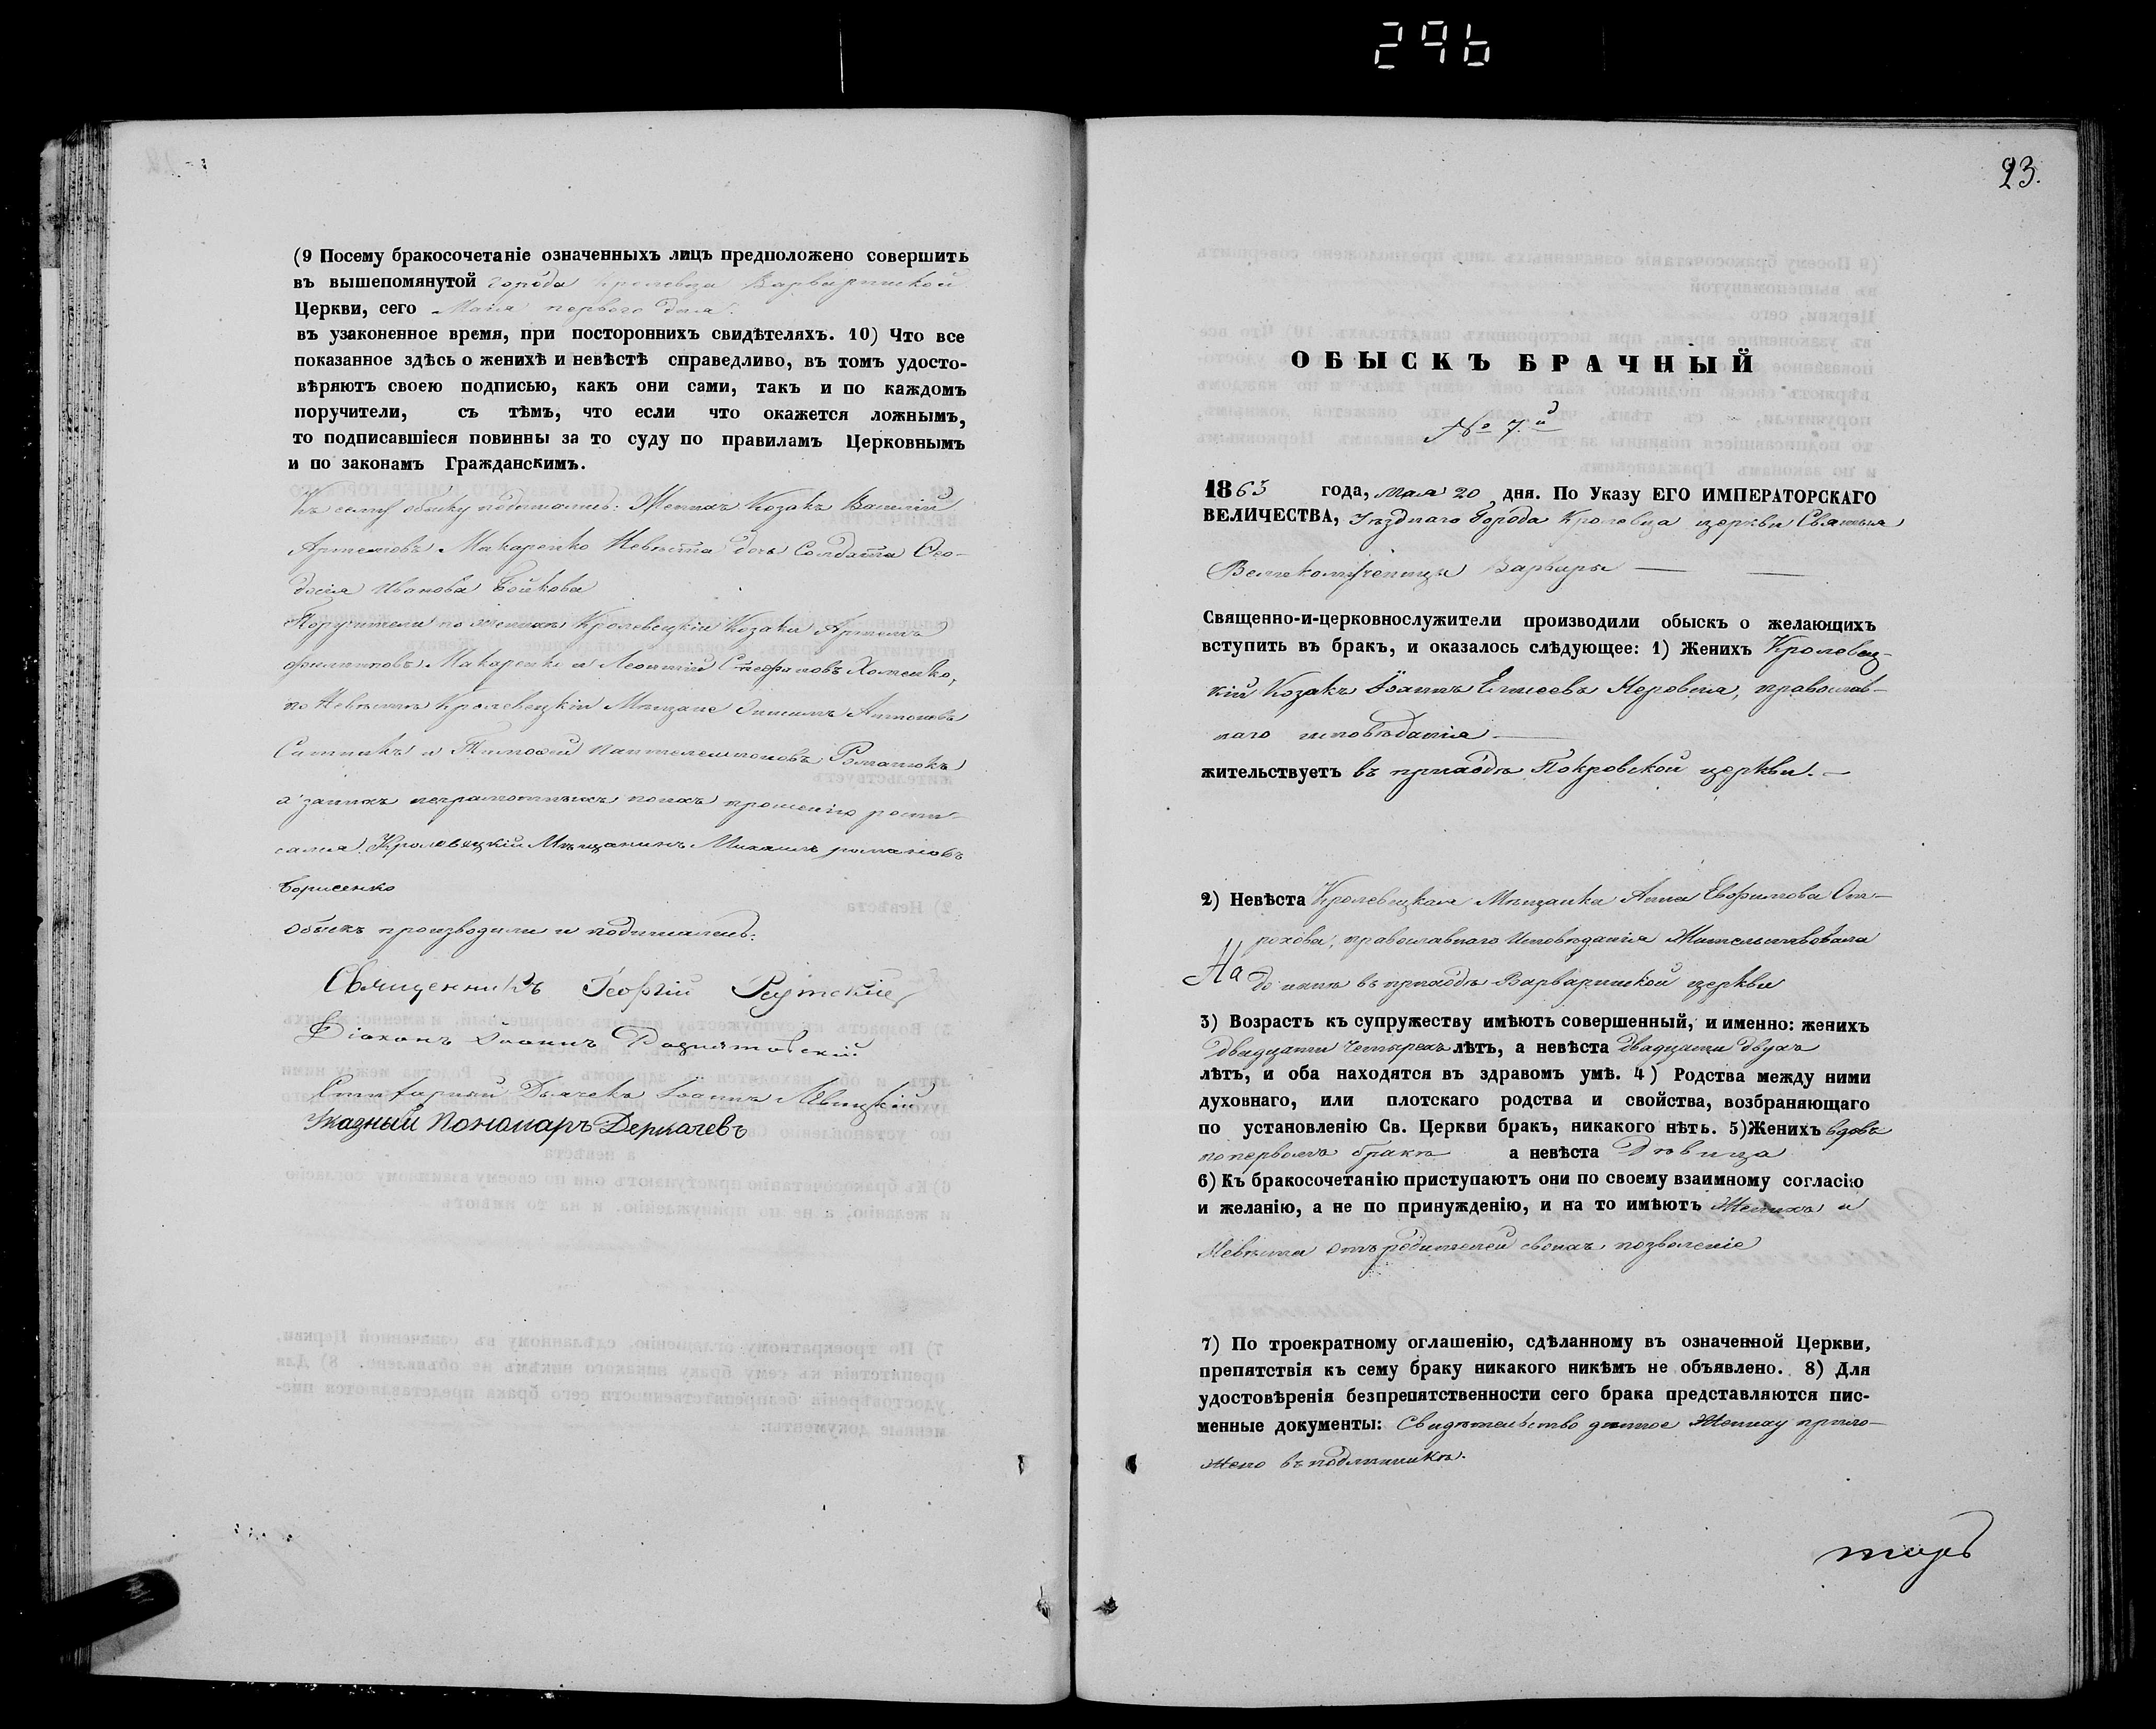 296
(9 Посему бракосочетаніе означенныхъ лицъ предположено совершить
въ вышепомянутой города Кролевца Варваринской
Церкви, сего Маія первого дня.
въ узаконенное время, при постороннихъ свидѣтеляхъ. 10) Что все
показанное здѣсь о женихѣ и невѣстѣ справедливо, въ томъ удосто-
вѣряютъ своею подписью, какъ они сами, такъ и по каждомъ
поручители, съ тѣмъ, что если что окажется ложнымъ,
то подписавшіеся повинны за то суду по правиламъ Церковнымъ
и по законамъ Гражданскимъ.
Къ сему обыску подписались: Женихъ Козакъ Василій
Артемовъ Макаренко Невѣста дочь Солдата Ѳео-
досія Иванова Бойкова
Поручители по женихѣ Кролевецкіи Козаки Артемъ
Филиповъ Макаренко и Леонтій Стефановъ Хоменко,
по Невѣстѣ Кролевецкіи Мѣщане Антоновъ
Ситникъ и Тимофей Пантелеимоновъ Романюкъ
а занихъ неграмотныхъ поихъ прошенію роспи-
сался Кролевецкій Мѣщанинъ Михаилъ романовъ
Борисенко
Обыскъ производили и подписались:
Священникъ Георгій
Діаконъ Іоаннъ
Дьячекъ Іоаннъ Левицкій
Указный Пономаръ Деркачевъ
23.
ОБЫСКЪ БРАЧНЫЙ
№ 7.й
1863 года, мая 20 дня. По Указу ЕГО ИМПЕРАТОРСКАГО
ВЕЛИЧЕСТВА, Уѣзднаго Города Кролевца церкви Святыя
Великомученицы Варвары —
Священно-и-церковнослужители производили обыскъ о желающихъ
вступить въ бракъ, и оказалось слѣдующее: 1) Женихъ Кролевец-
кій Козакъ Іоаннъ Елисеевъ Неровня, православ-
наго исповѣданія —
жительствуетъ въ приходѣ Покровской церкви. —
2) Невѣста Кролевецкая Мѣщанка Анна Евфимова
православнаго Исповѣданія Жительствовала
На до нынѣ въ приходѣ Варваринской церкви
3) Возрастъ къ супружеству имѣютъ совершенный, и именно: женихъ
двадцати четырехъ лѣтъ, а невѣста двадцати двухъ
лѣтъ, и оба находятся въ здравомъ умѣ. 4) Родства между ними
духовнаго, или плотскаго родства и свойства, возбраняющаго
по установленію Св. Церкви бракъ, никакого нѣтъ. 5) Женихъ вдовъ
по первомъ бракѣ а невѣста Дѣвица
6) Къ бракосочетанію приступаютъ они по своему взаимному согласію
и желанію, а не по принужденію, и на то имѣютъ Женихъ и
Невѣста отъ родителей своихъ позволеніе
7) По троекратному оглашенію, сдѣланному въ означенной Церкви,
препятствія къ сему браку никакого никѣмъ не объявлено. 8) Для
удостовѣренія безпрепятственности сего брака представляются пис-
менные документы: Свидѣтельство данное Жениху прило-
жено въ подлинникѣ.